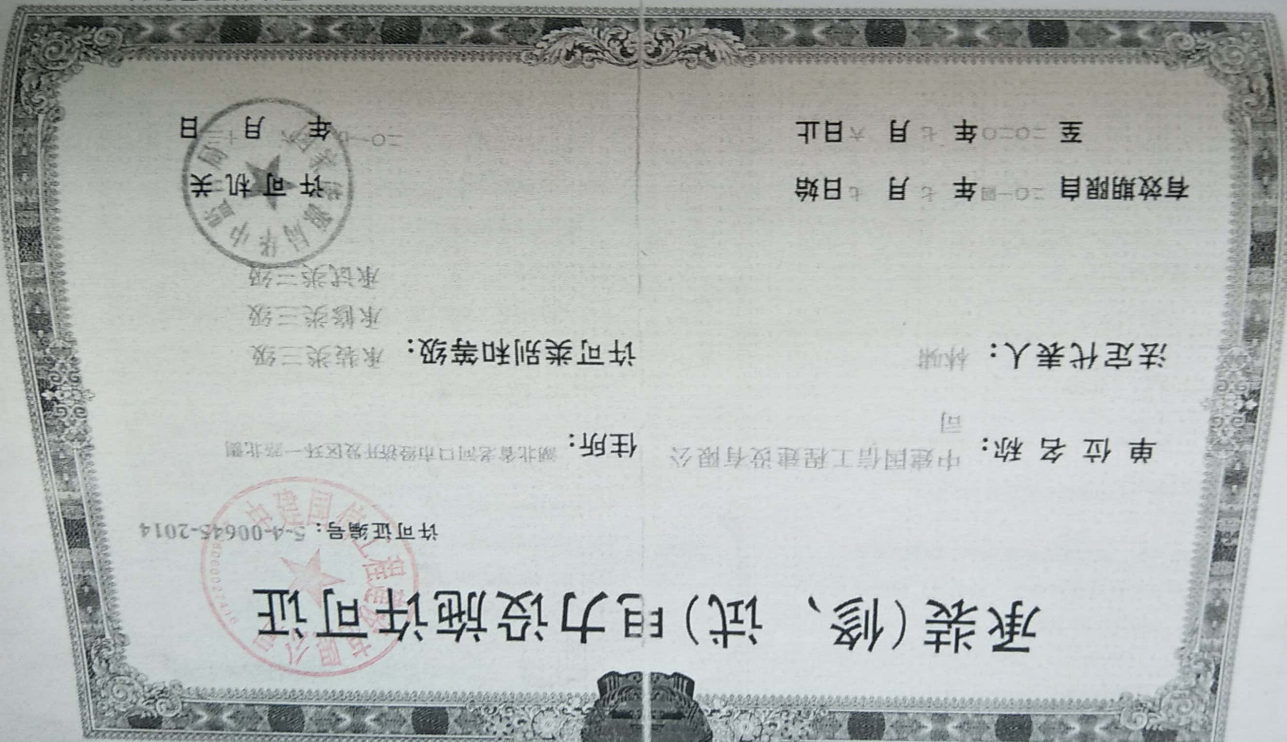 承装(修、试)电力设施许可证
许可证编号：5-4-00645-2014
单位名称：中建国信工程建设有限公
司
住所：湖北省老河口市经济开发区环一路北侧
法定代表人：林啸
许可类别和等级：承装类三级
承修类三级
承试类三级
有效期限自二〇一四年七月七日始
至二〇二〇年七月六日止
许可机关
年 月 日
国家能源局华中监管局
中建国信工程建设有限公司